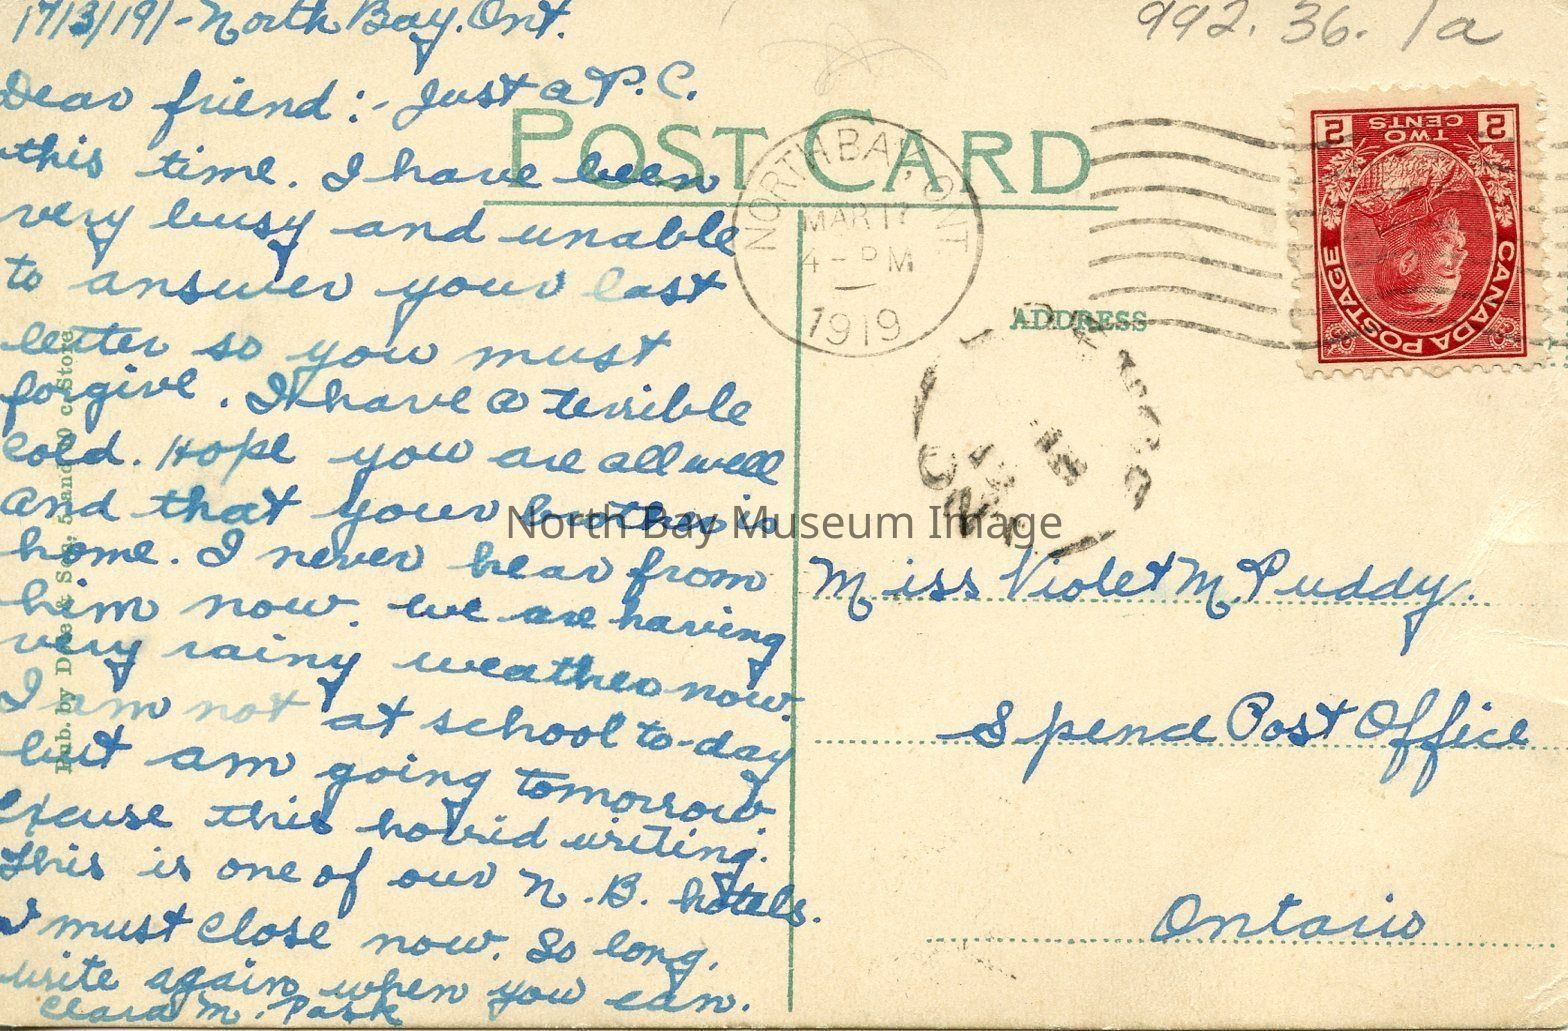 17/3/19/-North Bay. Ont.
992. 36. 1a
Dear friend :- Just a P.C.
this time. I have been
very busy and unable
to answer your last
letter so you must
forgive. I have a terrible
cold. Hope you are all well
and that your brother is
home. I never hear from
him now. We are having
very rainy weather now.
I am not at school to-day
but am going tomorrow.
Excuse this horrid writing.
This is one of our N.B. hotels.
I must close now. So long,
write again when you can.
Clara M. Pask
POST CARD
NORTH BAY, ONT
MAR 17
4 - PM
1919
CANADA POSTAGE
2 TWO CENTS 2
ADDRESS
Miss Violet M. Puddy.
Spence Post Office
Ontario
Pub. by
5 and
c. Store
North Bay Museum Image